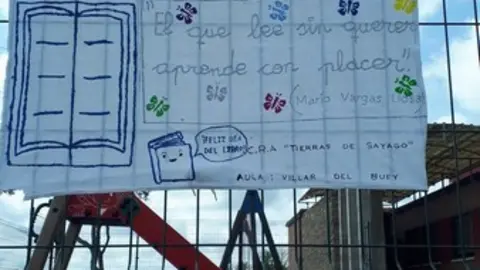 "El que lee sin querer
aprende con placer"
(Mario Vargas Llosa)
¡FELIZ DÍA
DEL LIBRO!
C.R.A "TIERRAS DE SAYAGO"
AULA: VILLAR DEL BUEY